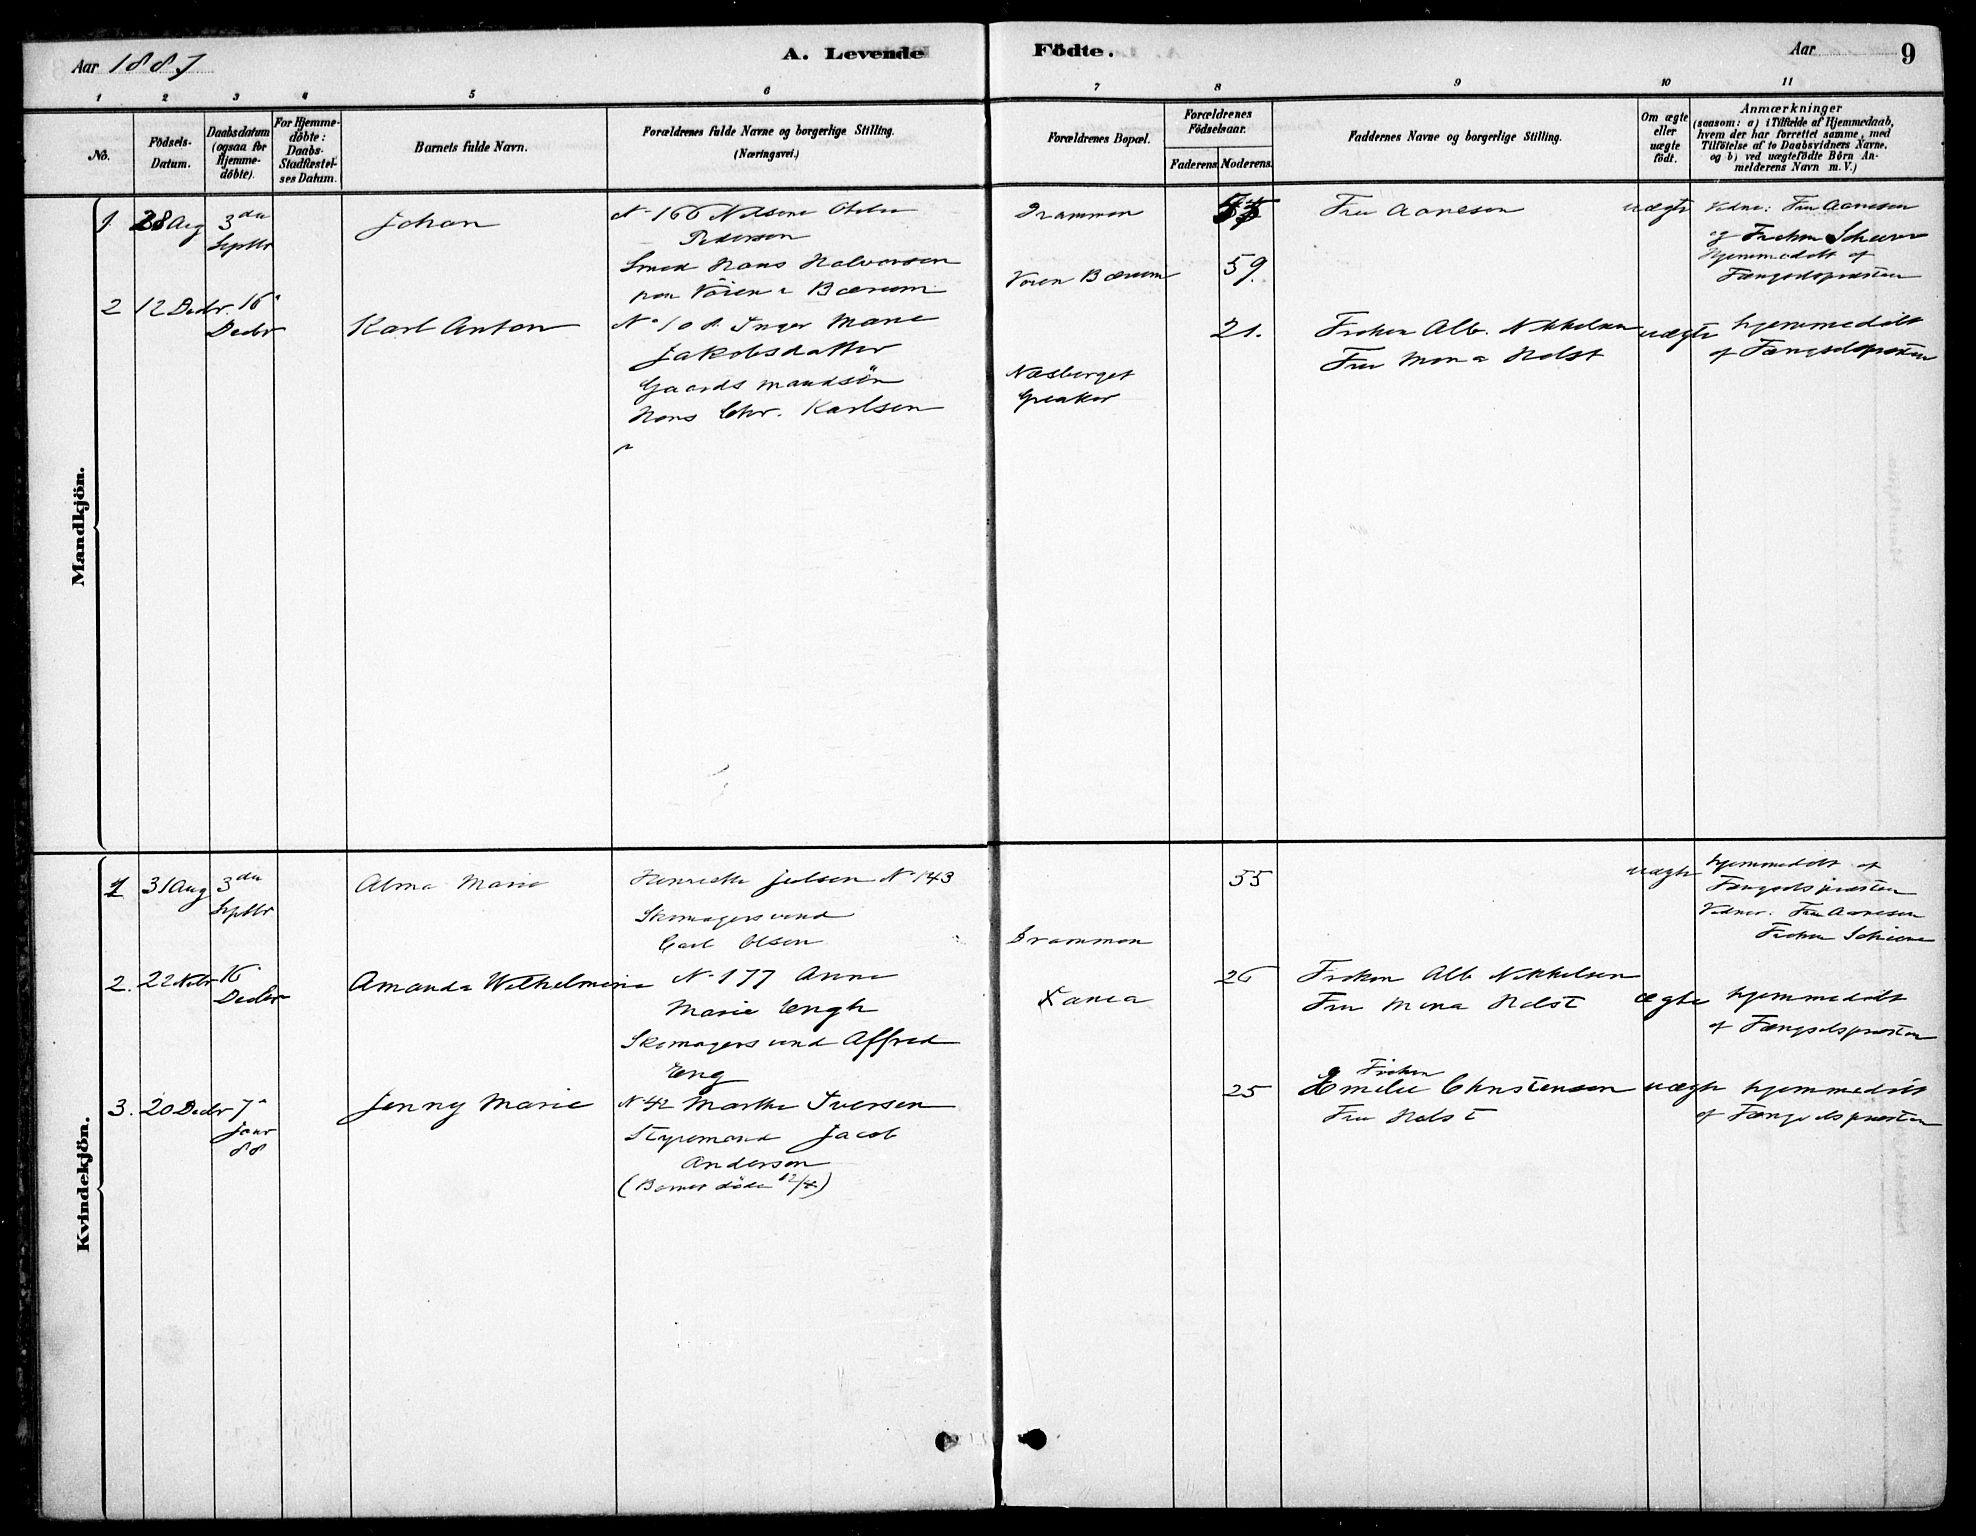 Aar 1887
A. Levende
Födte.
Aar
9
1 2 3 4 5 6 7 8 9 10 11
No.
Födsels-
Datum.
Daabsdatum
(ogsaa for
Hjemme-
døbte).
For Hjemme-
døbte:
Daabs-
Stadfæstel-
ses Datum.
Barnets fulde Navn.
Forældrenes fulde Navne og borgerlige Stilling.
(Næringsvei.)
Forældrenes Bopæl.
Forældrenes
Födselsaar.
Faderens. Moderens.
Faddernes Navne og borgerlige Stilling.
Om ægte
eller
uægte
født.
Anmærkninger
(saasom: a) i Tilfælde af Hjemmedaab,
hvem der har forrettet samme, med
Tilföielse af to Daabsvidners Navne,
og b) ved uægtefödte Börn An-
melderens Navn m. V.)
Mandkjön.
1. 28 Aug 3die Septbr
Johan
N. 166
Pedersen
Smed Hans Halvorsen
Bærum
Drammen
Bærum
59.
Fru Aanesen
uægte
Vidne: Fru Aanesen
og Frøken
Hjemmedøbt af
Fængselspræsten
2 12 Decbr. 16
Decbr
Karl Anton
No 108. Inger Marie
Jakobsdatter
Gaardmandsøn
Hans Chr. Karlsen
Næsberget
Greaker
21.
Frøken Alb. Nikkelsen
Fru Mina Holst
uægte
hjemmedøbt
af Fængselspræsten
Kvindekjön.
1 31 Aug 3die
Septbr
Alma Marie
Henriette Julsen N 143
Skomagersvend
Carl Olsen
Drammen
55
uægte
hjemmedøbt af
Fængselspræsten
Vidner: Fru Aanesen
Frøken
2. 22 Nvbr 16
Decbr
Amanda Wilhelmine
N. 177 Anne
Marie Engh
Skomagersvend Alfred
Eng
Xania
26
Frøken Alb Nikkelsen
Fru Mina Holst
ægte
hjemmedøbt
af Fængselspræsten
3. 20 Decbr 7
Janr
88
Jenny Marie
N 42 Marthe Iversen
Styrmand Jacob
Andersen
(Barnet døde 12/4)
25
Frøken
Emilie Christensen
Fru Holst
uægte
hjemmedøbt
af Fængselspræsten